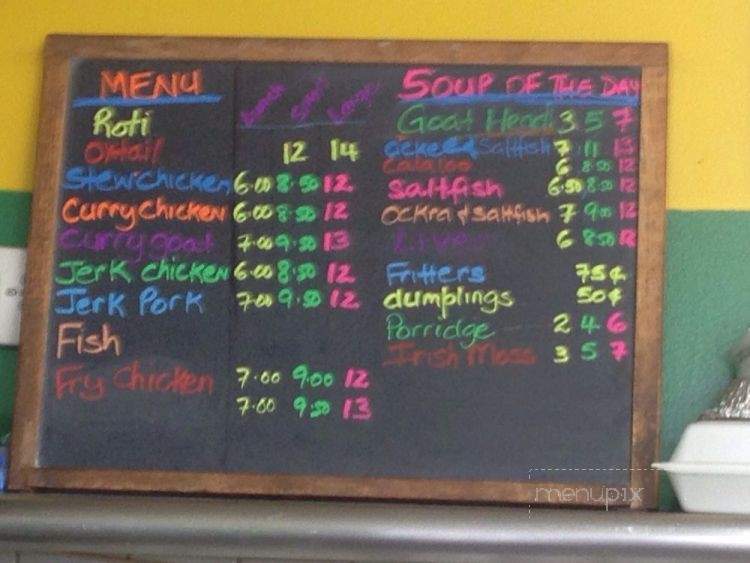 MENU
Roti
Oxtail 12 14
Stew chicken 6.00 8.50 12
Curry chicken 6.00 8.50 12
Curry goat 7.00 9.50 13
Jerk chicken 6.00 8.50 12
Jerk Pork 7.00 9.50 12
Fish
Fry chicken 7.00 9.00 12
7.00 9.50 13
SOUP OF THE DAY
Goat Head 3 5 7
Ackee & Saltfish 7 11 13
Calaloo 6 8.50 12
Saltfish 6.50 8.50 12
Ockra & Saltfish 7 9.00 12
Liver 6 8.50 12
Fritters 75¢
dumplings 50¢
Porridge 2 4 6
Irish Moss 3 5 7
menupix